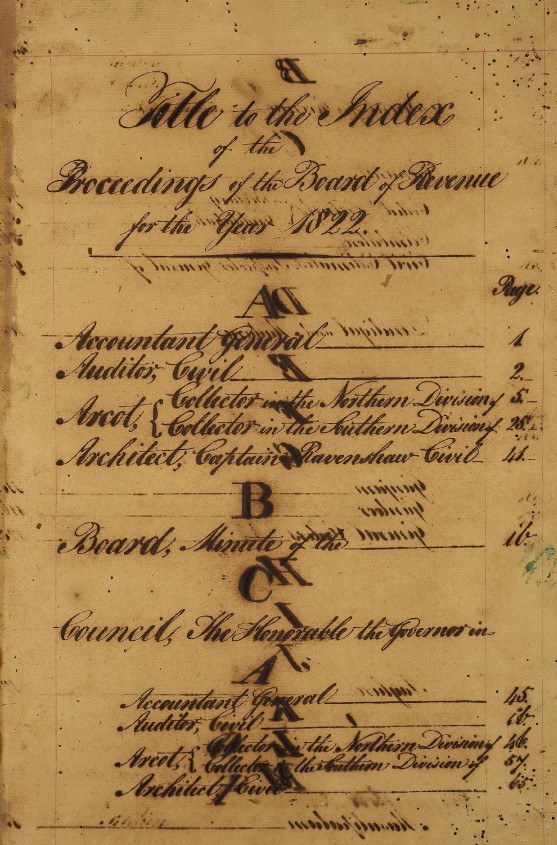 Title to the Index
of the
Proceedings of the Board of Revenue
for the Year 1822.
Page.
A
Accountant General 1
Auditor, Civil 2.
Arcot, { Collector in the Northern Division of 5.
Collector in the Southern Division of 28.
Architect, Captain Ravenshaw Civil 41.
B
Board, Minute of the ib.
C
Council, The Honorable the Governor in
A
Accountant General 45.
Auditor, Civil ib.
Arcot, { Collector in the Northern Division of 46.
Collector in the Southern Division of 57.
Architect, Civil 65.